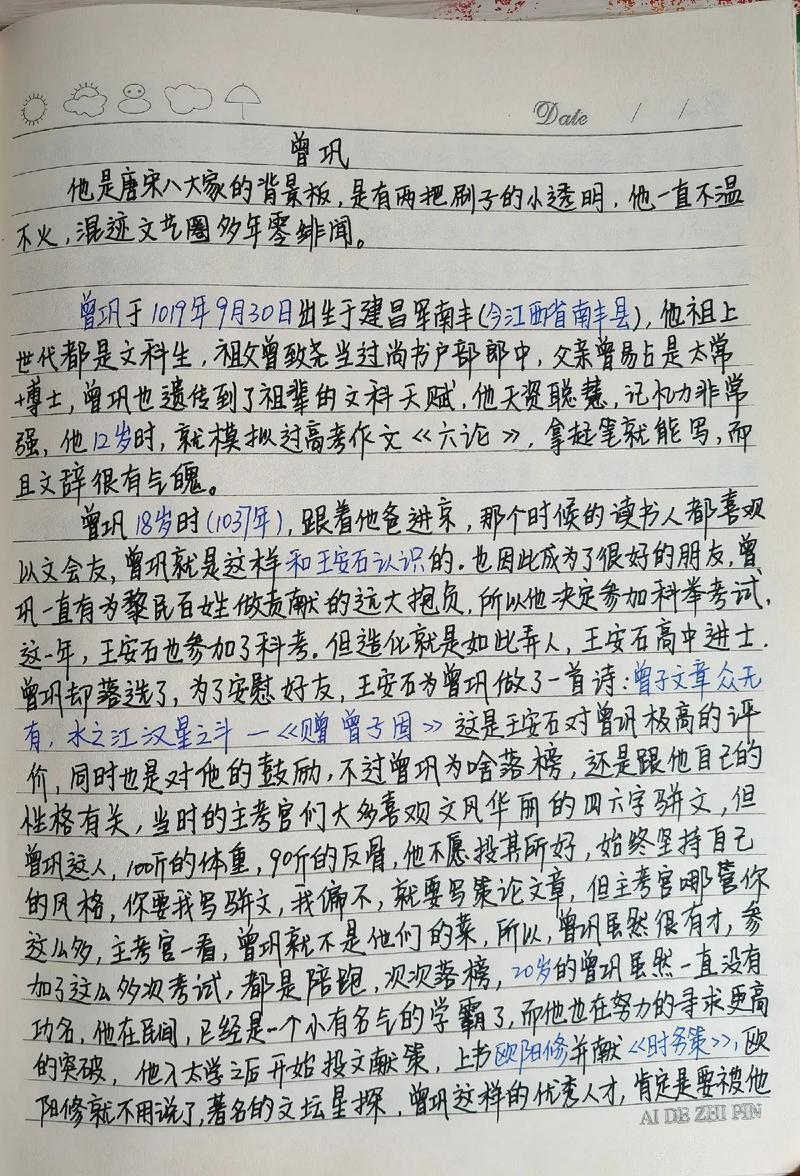 Date / /
曾巩
他是唐宋八大家的背景板，是有两把刷子的小透明，他一直不温
不火，混迹文艺圈多年零绯闻。
曾巩于1019年9月30日出生于建昌军南丰(今江西省南丰县)，他祖上
世代都是文科生，祖父曾致尧当过尚书户部郎中，父亲曾易占是太常
博士，曾巩也遗传到了祖辈的文科天赋，他天资聪慧，记忆力非常
强，他12岁时，就模拟过高考作文《六论》，拿起笔就能写，而
且文辞很有气魄。
曾巩18岁时(1037年)，跟着他爸进京，那个时候的读书人都喜欢
以文会友，曾巩就是这样和王安石认识的。也因此成为了很好的朋友，曾
巩一直有为黎民百姓做贡献的远大抱负，所以他决定参加科举考试，
这一年，王安石也参加了科考。但造化就是如此弄人，王安石高中进士.
曾巩却落选了，为了安慰好友，王安石为曾巩做了一首诗：曾子文章众无
有，水之江汉星之斗—《赠曾子固》这是王安石对曾巩极高的评
价，同时也是对他的鼓励，不过曾巩为啥落榜，还是跟他自己的
性格有关，当时的主考官们大多喜欢文风华丽的四六字骈文，但
曾巩这人，100斤的体重，90斤的反骨，他不愿投其所好，始终坚持自己
的风格，你要我写骈文，我偏不，就要写策论文章，但主考官哪管你
这么多，主考官一看，曾巩就不是他们的菜，所以，曾巩虽然很有才，参
加了这么多次考试，都是陪跑，次次落榜，20岁的曾巩虽然一直没有
功名，他在民间，已经是一个小有名气的学霸了，而他也在努力的寻求更高
的突破，他入太学之后开始投文献策，上书欧阳修并献《时务策》，欧
阳修就不用说了，著名的文坛星探，曾巩这样的优秀人才，肯定是要被他
AI DE ZHI PIN